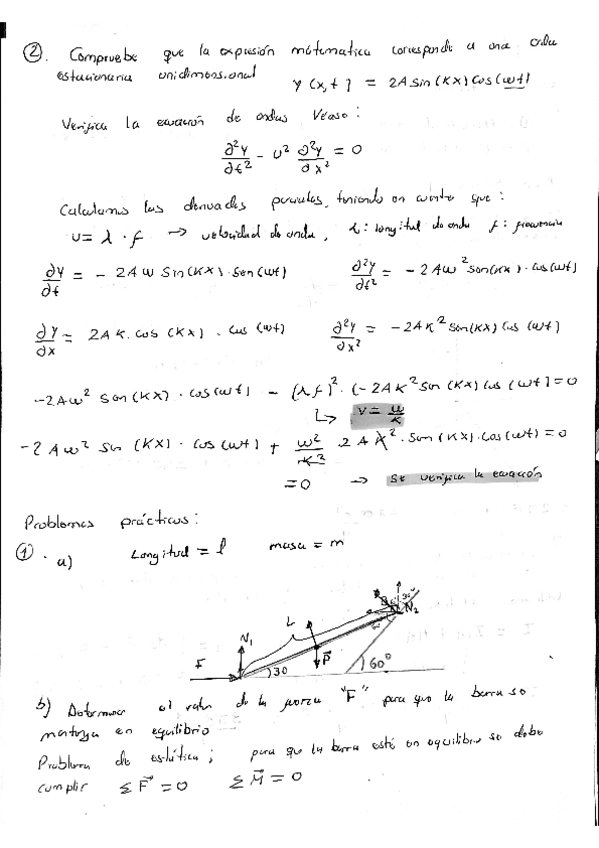 ② Compruebe que la expresión matematica corresponde a una onda
estacionaria unidimensional y(x,t) = 2A sin(Kx) cos(wt)
Verifica la ecuación de ondas Véase:
∂²y/∂t² - v² ∂²y/∂x² = 0
Calculamos las derivadas parciales, teniendo en cuenta que:
v = λ · f → velocidad de onda, λ: longitud de onda f: frecuencia
∂y/∂t = - 2Aw Sin(Kx)·Sen(wt) ∂²y/∂t² = - 2Aw² sen(Kx)·cos(wt)
∂y/∂x = 2AK·cos(Kx)·cos(wt) ∂²y/∂x² = -2AK² Sen(Kx) cos(wt)
-2Aw² sen(Kx)·cos(wt) - (λf)²·(-2AK² sin(Kx) cos(wt)) = 0
↳ v = w/K
-2Aw² sin(Kx)·cos(wt) + w²/K² 2AK²·Sen(Kx)·cos(wt) = 0
= 0 → Se verifica la ecuación
Problemas prácticos:
①. a) Longitud = l masa = m
L
N₁ N₂
F P⃗
30 60°
b) Determinar el valor de la fuerza "F" para que la barra se
mantenga en equilibrio
Problema de estática; para que la barra esté en equilibrio se debe
cumplir ΣF⃗ = 0 ΣM⃗ = 0